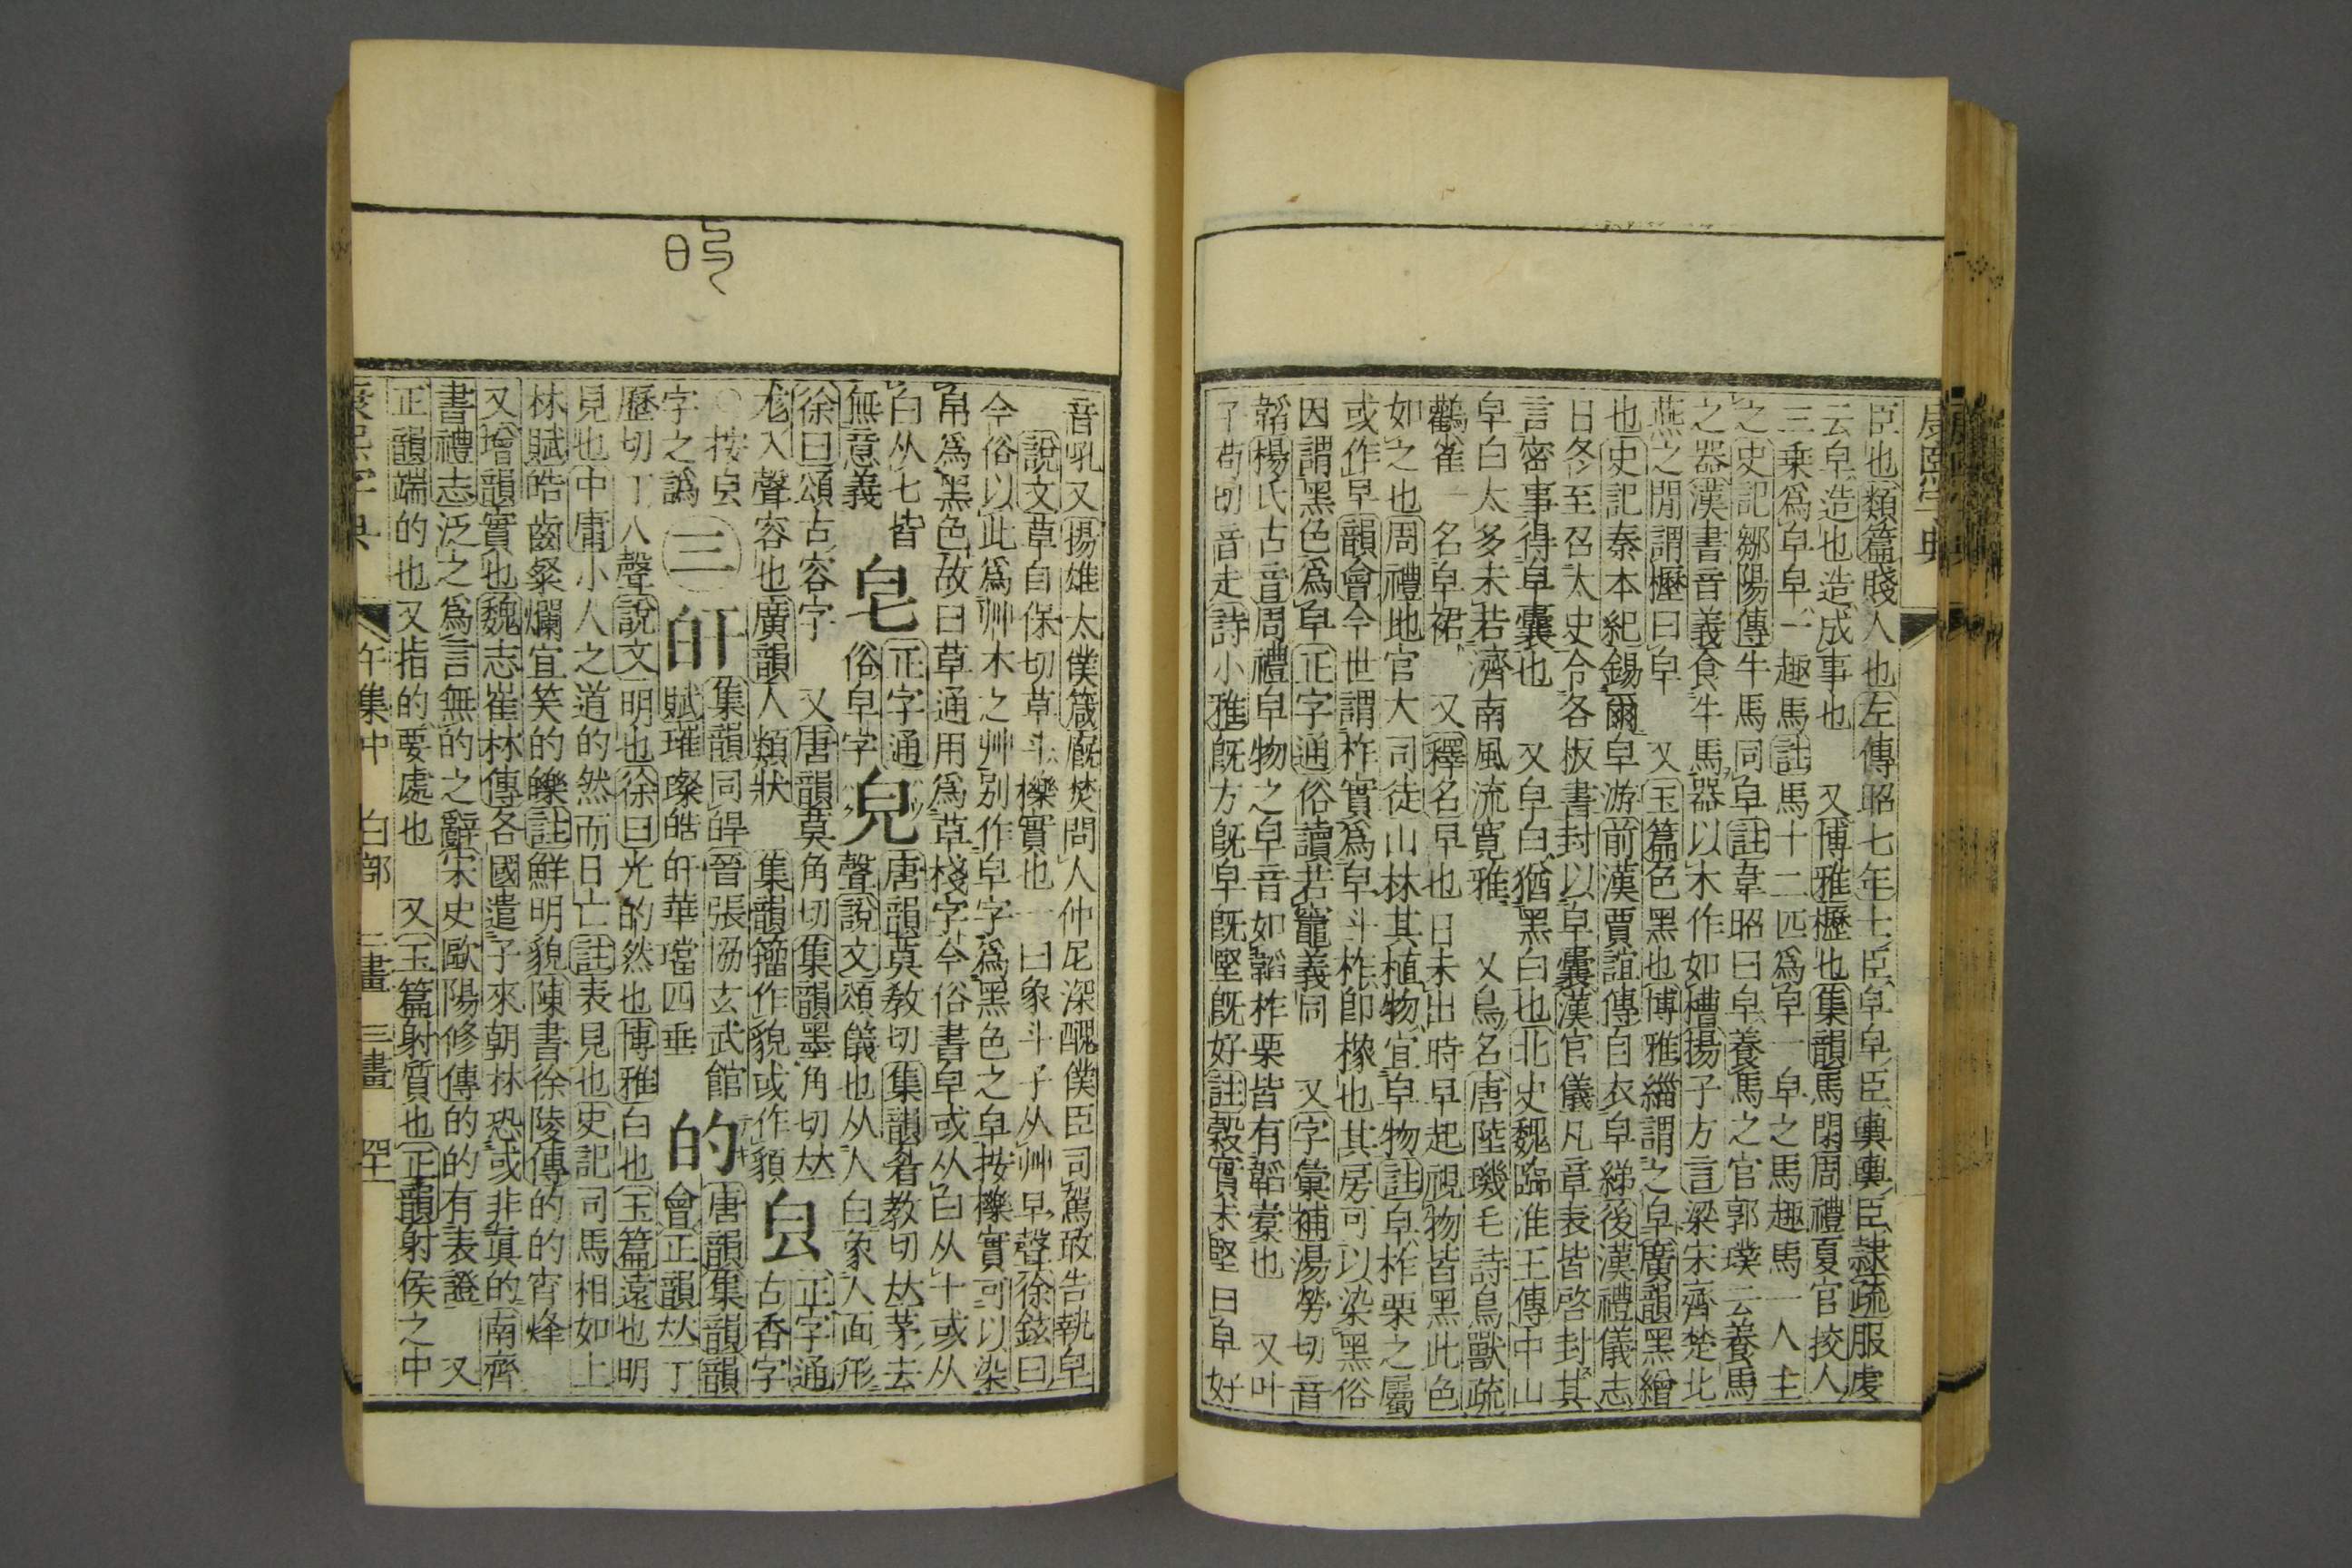 康熙字典
臣也類篇賤人也左傳昭七年士臣皁皁臣輿輿臣隸疏服虔
云皁造也造成事也 又博雅櫪也集韻馬閑周禮夏官挍人
三乗爲皁皁一趣馬註馬十二匹爲皁一皁之馬趣馬一人主
之史記鄒陽傳牛馬同皁註韋昭曰皁養馬之官郭璞云養馬
之器漢書音義食牛馬器以木作如槽揚子方言梁宋齊楚北
燕之閒謂櫪曰皁 又玉篇色黑也博雅緇謂之皁廣韻黑繒
也史記秦本紀錫爾皁游前漢賈誼傳白衣皁綈後漢禮儀志
日冬至召太史令各板書封以皁囊漢官儀凡章表皆啓封其
言密事得皁囊也 又皁白猶黑白也北史魏臨淮王傳中山
皁白太多未若濟南風流寛雅 又鳥名唐陸璣毛詩鳥獸疏
鸛雀一名皁裙 又釋名早也日未出時早起視物皆黑此色
如之也周禮地官大司徒山林其植物宜皁物註皁柞栗之屬
或作早韻會今世謂柞實爲皁斗柞卽橡也其房可以染黑俗
因謂黑色爲皁正字通俗讀若竈義同 又字彙補湯勞切音
韜楊氏古音周禮皁物之皁音如韜柞栗皆有韜槖也 又叶
子苟切音走詩小雅旣方旣皁旣堅旣好註穀實未堅曰皁好
音吼又揚雄太僕箴廏焚問人仲尼深醜僕臣司駕敢告執皁
說文草自保切草斗櫟實也一曰象斗子从艸早聲徐鉉曰
今俗以此爲艸木之艸別作皁字爲黑色之皁按櫟實可以染
帛爲黑色故曰草通用爲草棧字今俗書皁或从白从十或从
白从七皆
無意義
皂
正字通
俗皁字
皃
唐韻莫敎切集韻眉教切𠀤茅去
聲說文頌儀也从人白象人面形
徐曰頌古容字 又唐韻莫角切集韻墨角切𠀤
尨入聲容也廣韻人類狀 集韻籀作貌或作䫉
㿝
正字通
古香字
○按㿝
字之譌
三
㿞
集韻同皔晉張協玄武館
賦璀璨皓㿞華璫四垂
的
唐韻集韻韻
會正韻𠀤丁
歷切丁入聲說文明也徐曰光的然也博雅白也玉篇遠也明
見也中庸小人之道的然而日亡註表見也史記司馬相如上
林賦皓齒粲爛宜笑的皪註鮮明貌陳書徐陵傳的的宵烽
又增韻實也魏志崔林傳各國遣子來朝林恐或非眞的南齊
書禮志泛之爲言無的之辭宋史歐陽修傳的的有表證 又
正韻端的也又指的要處也 又玉篇射質也正韻射侯之中
康熙字典
午集中 白部 二畫 三畫